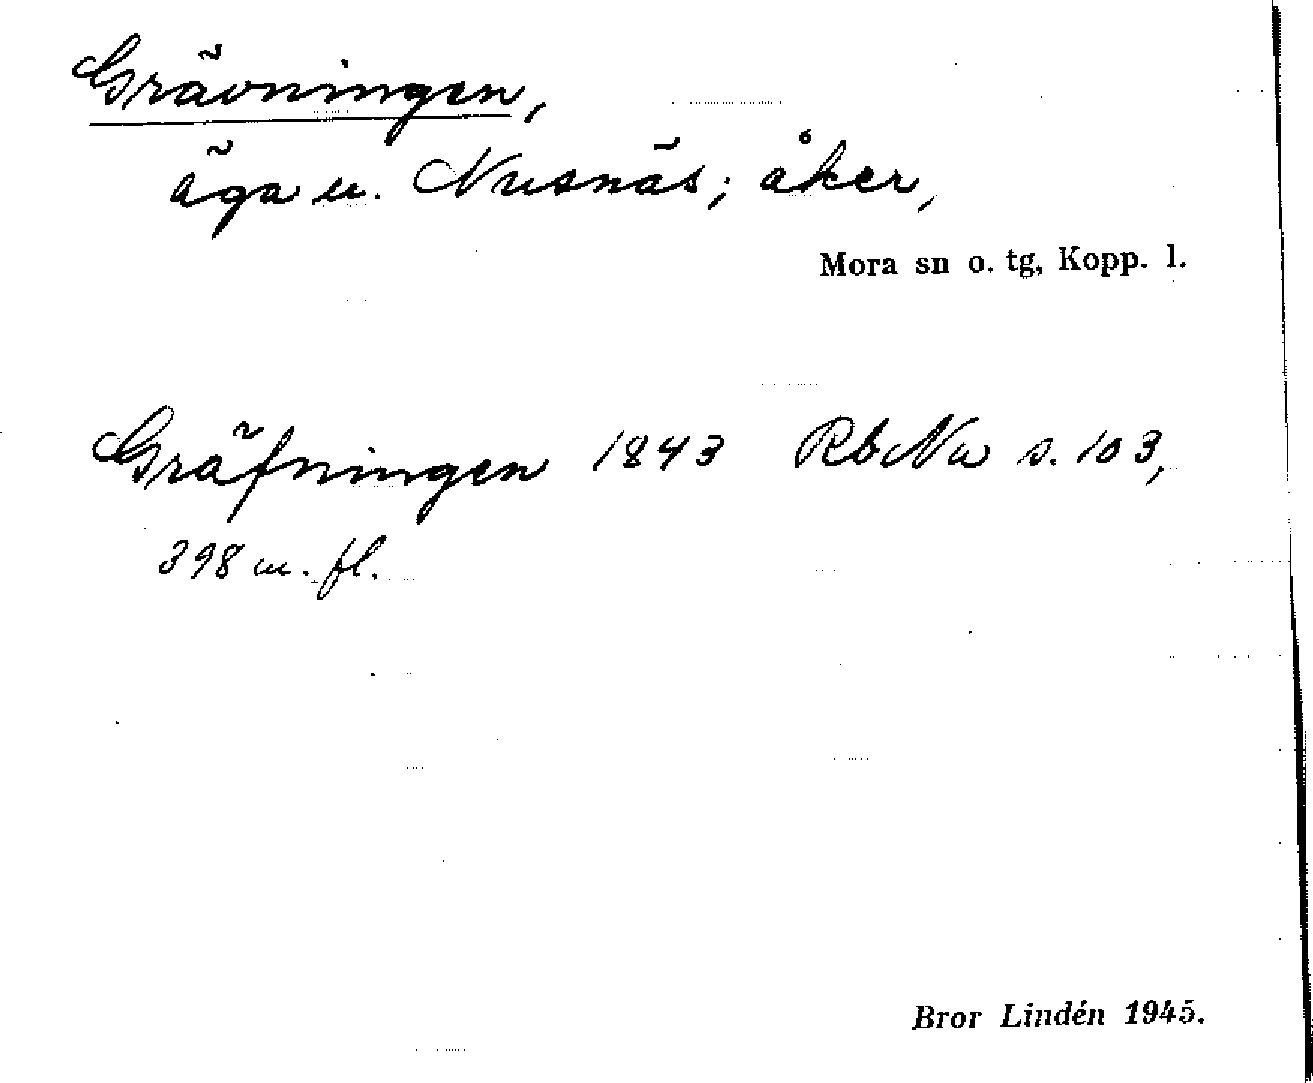 Grävningen,
äga u. Nusnäs; åker,
Mora sn o. tg, Kopp. l.
Gräfningen 1843 RbNu s. 103,
398 m. fl.
Bror Lindén 1945.